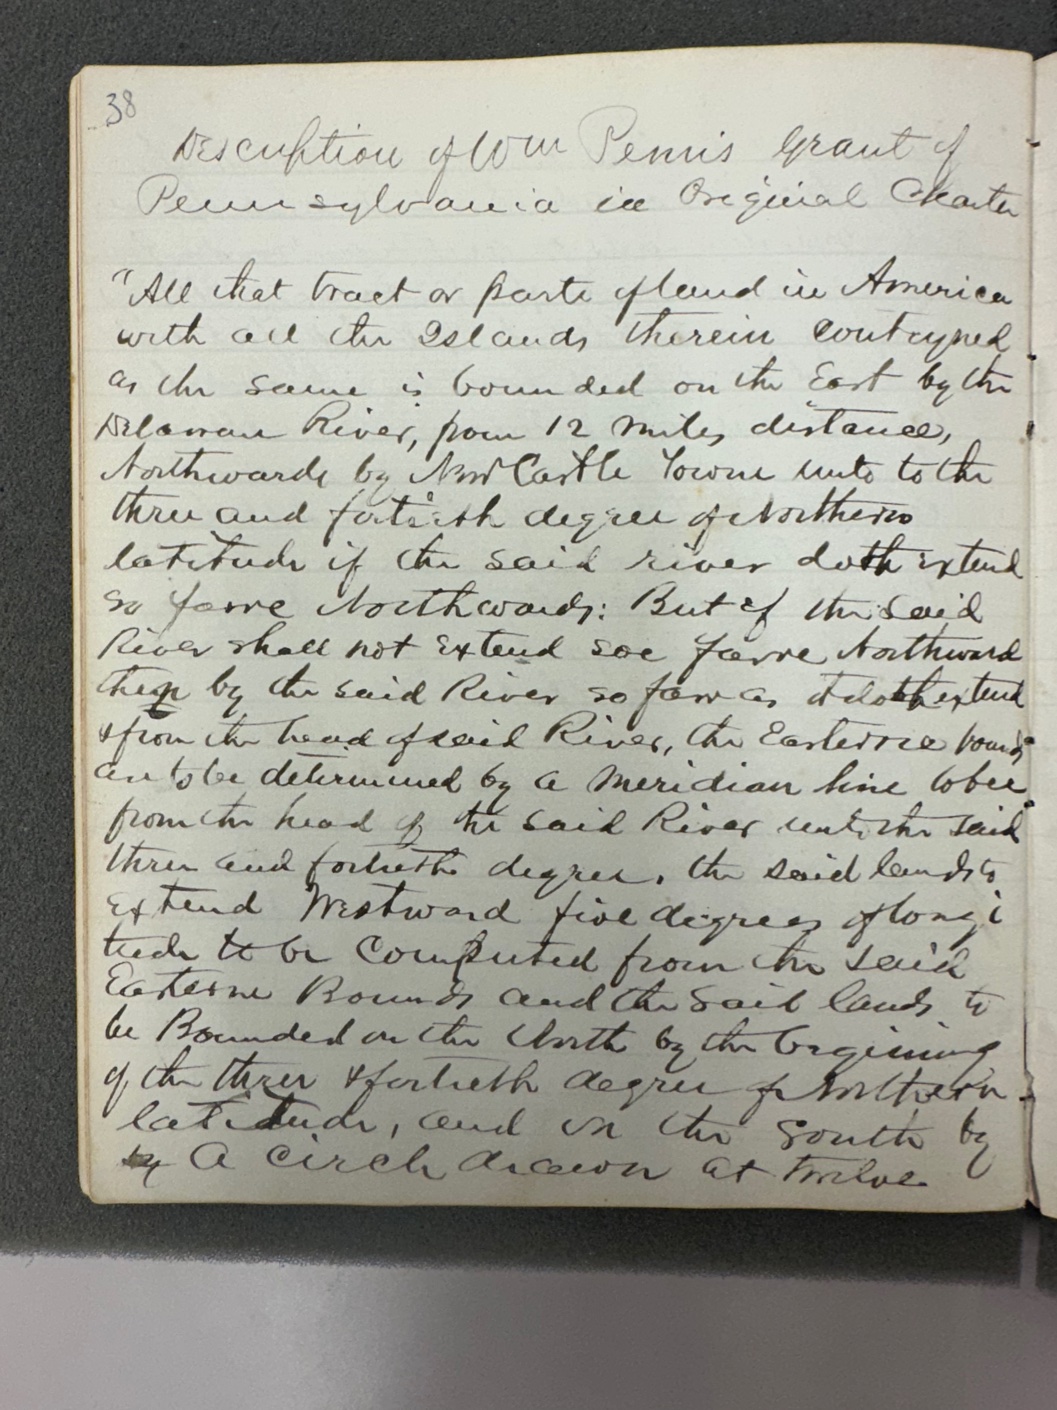 38
Description of Wm Penn's Grant of
Pennsylvania in Original Charter
"All that tract or parte of land in America
with all the Islands therein contayned
as the same is bounded on the East by the
Delaware River, from 12 miles distance,
Northwards by New Castle Towne unto to the
three and fortieth degree of Northern
latitude if the said river doth extend
so farre Northwards: But if the said
River shall not extend soe farre Northward
then by the said River so farr as it doth extend
& from the head of said River, the Easterne bounds
are to be determined by a meridian line to bee
from the head of the said River unto the said
three and fortieth degree, the said lands to
extend Westward five degrees of longi
tude to be computed from the said
Easterne Bounds and the said lands to
be Bounded on the North by the begining
of the three & fortieth degree of Northern
latitude, and on the South by
by A Circle drawn at twelve